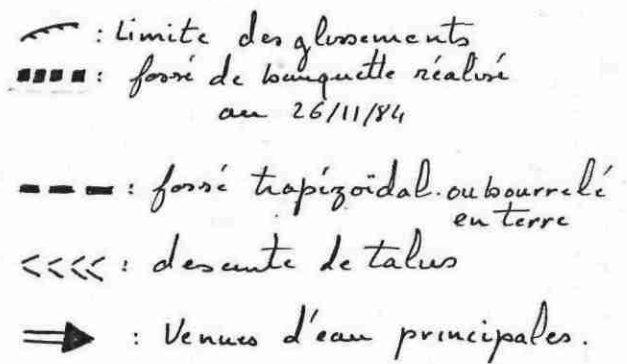 : Limite des glissements
: fossé de banquette réalisé
au 26/11/84
: fossé trapézoïdal. ou bourrelé
en terre
<<<< : descente de talus
: Venues d'eau principales.